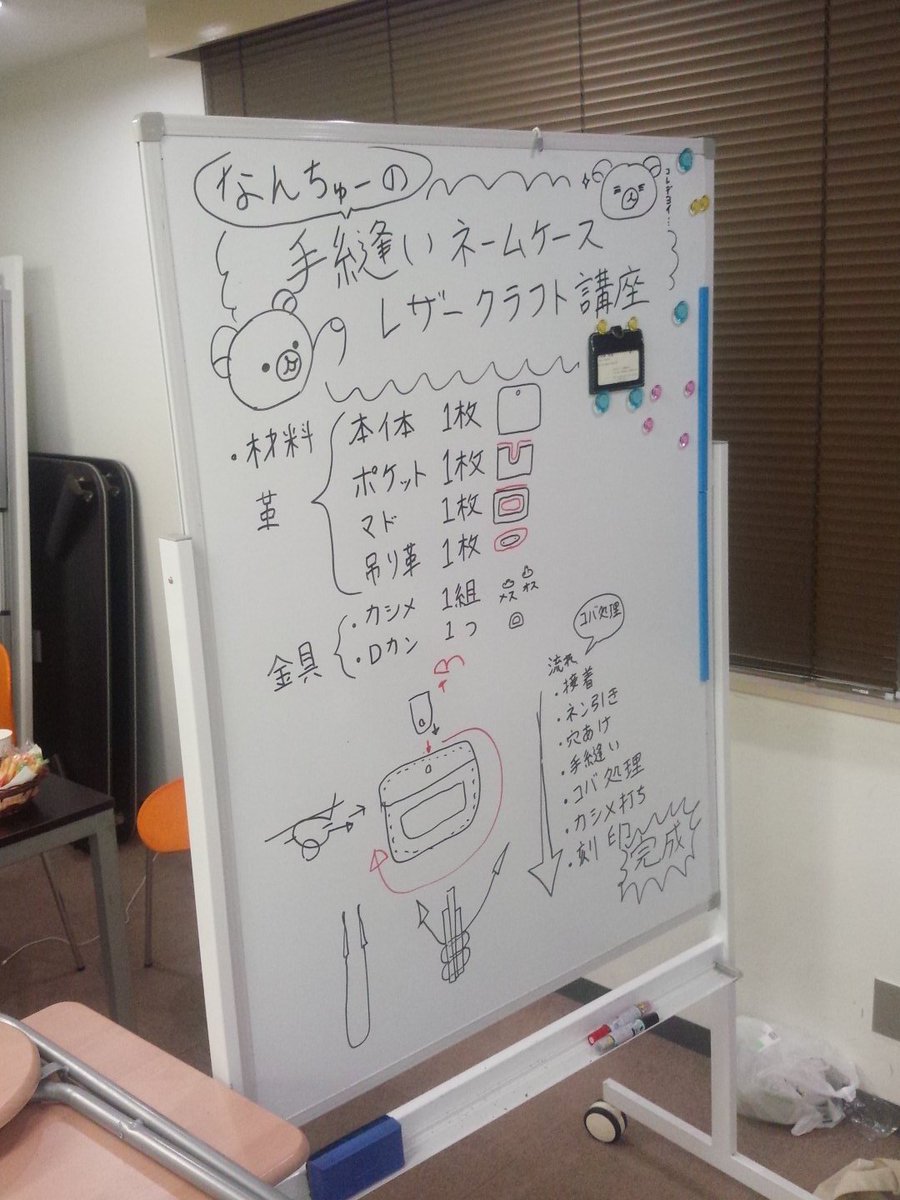 なんちゅーの
コレデヨイ…
手縫いネームケース
レザークラフト講座
・材料
革
本体 1枚
ポケット 1枚
マド 1枚
吊り革 1枚
金具
・カシメ 1組
メス オス
・Dカン 1つ
コバ処理
流れ
・接着
・ネン引き
・穴あけ
・手縫い
・コバ処理
・カシメ打ち
・刻印
完成